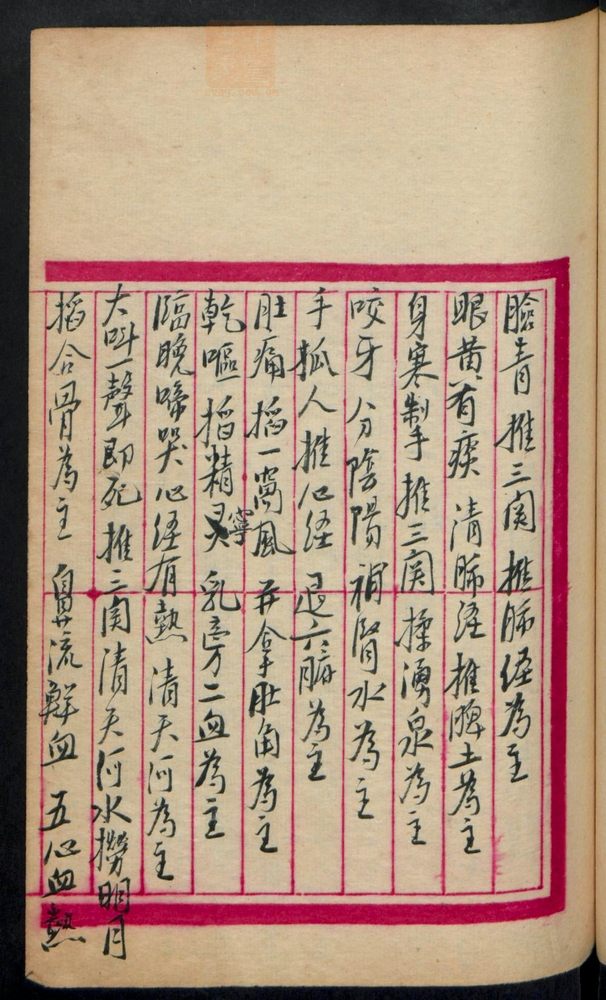 臉青 推三関 推肺经為主
眼黄有痰 清肺经 推脾土為主
身寒制手 推三関 揉湧泉為主
咬牙 分陰陽 補腎水為主
手抓人 推心经 退六腑為主
肚痛 掐一窩風 并拿肚角為主
乾嘔 掐精寧 乳旁二血為主
臨晚啼哭 心经有熱 清天河為主
大叫一聲即死 推三関清天河水撈明月
掐合骨為主 鼻流鮮血 五心血熱